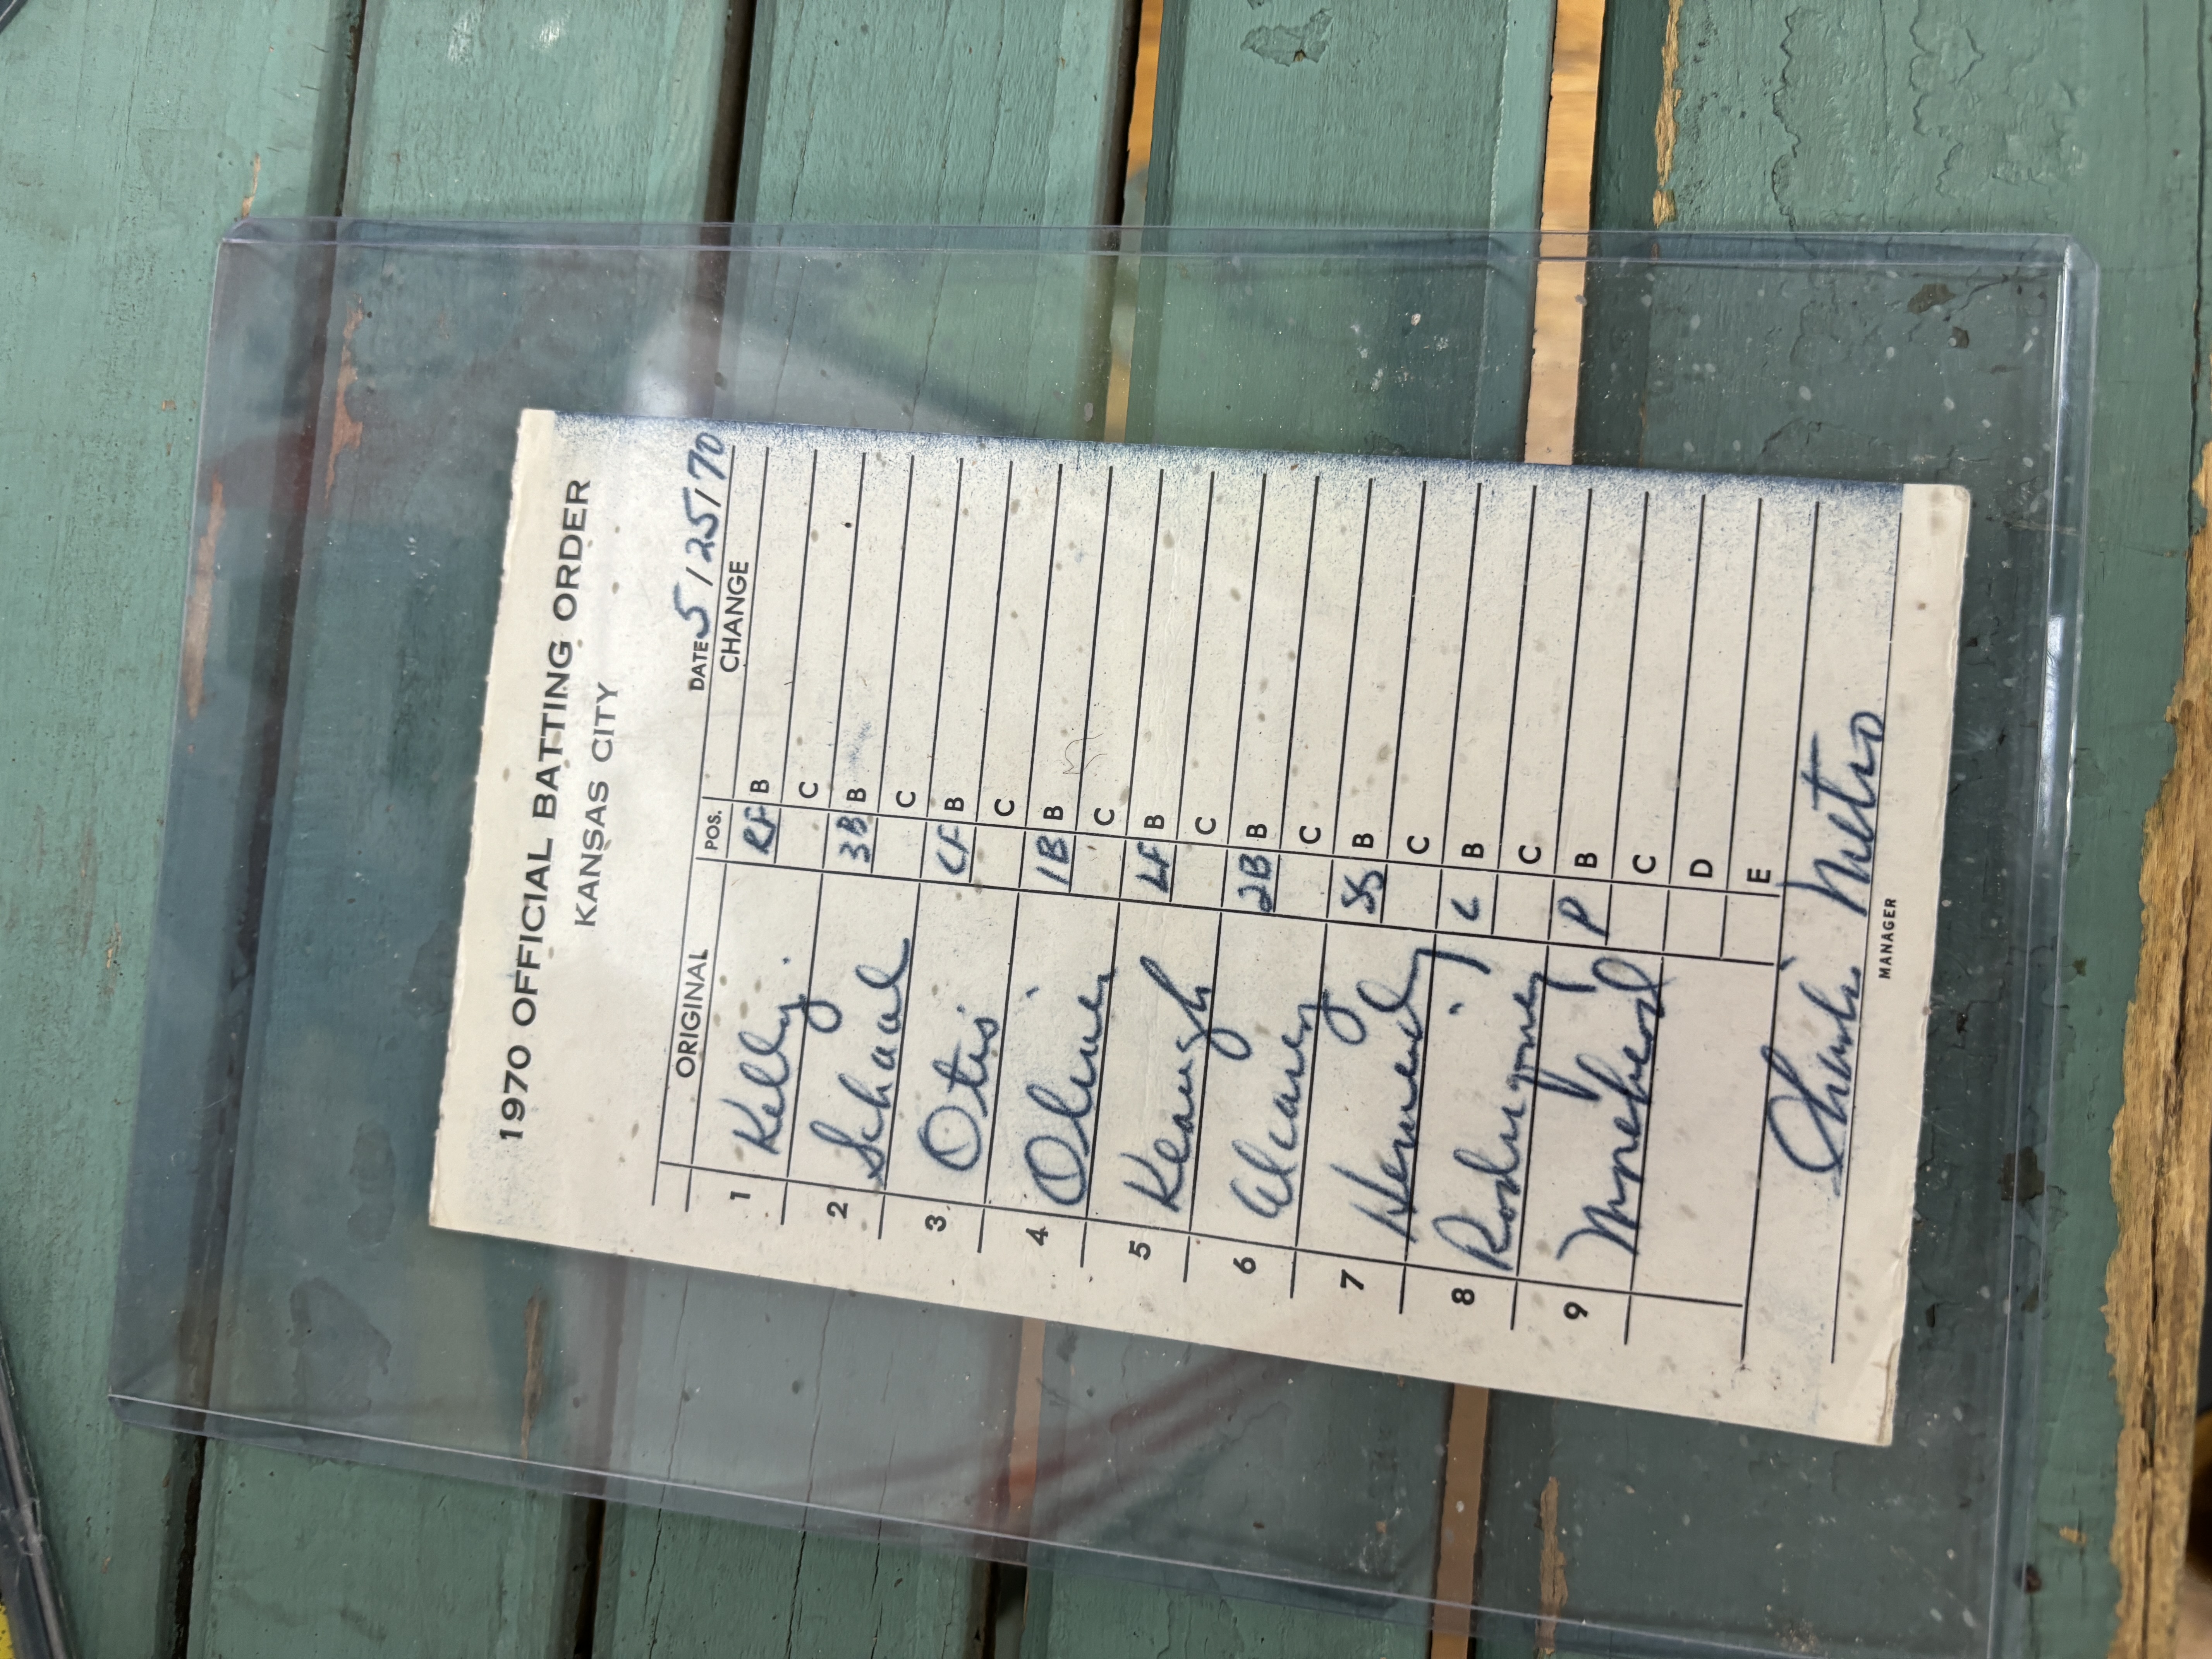 1970 OFFICIAL BATTING ORDER
KANSAS CITY
DATE 5/25/70
ORIGINAL POS. CHANGE
1 Kelly RF B
C
2 Schaal 3B B
C
3 Otis CF B
C
4 Oliver 1B B
C
5 Keough LF B
C
6 Alcaraz 2B B
C
7 Hernandez SS B
C
8 Rodriguez C B
C
9 Morehead P B
C
D
E
Charlie Metro
MANAGER